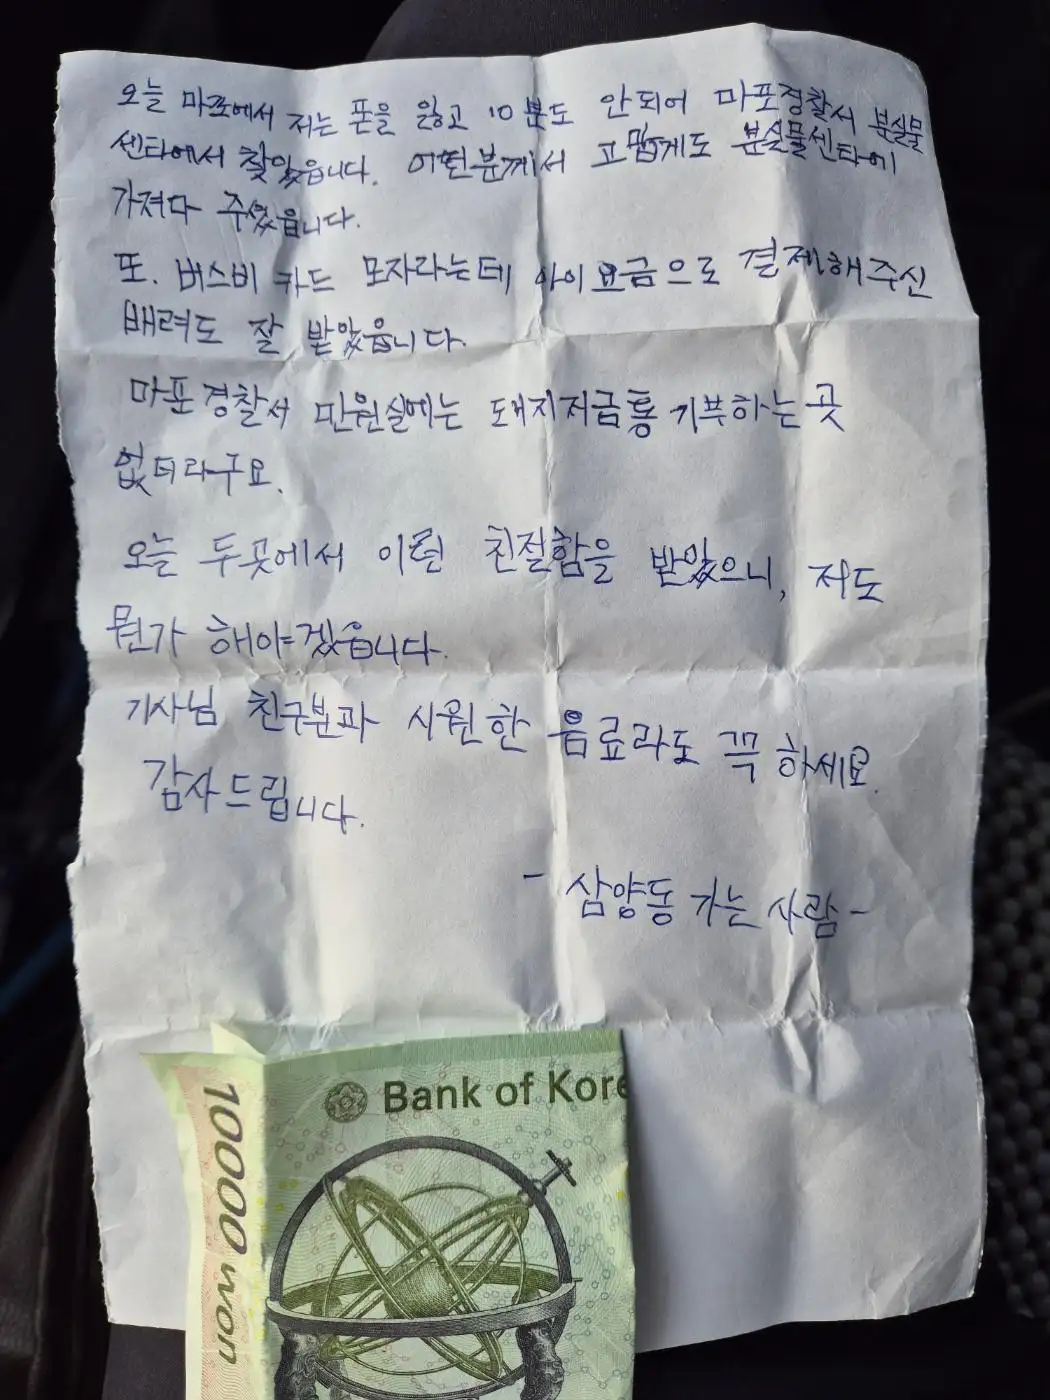 오늘 마포에서 저는 폰을 잃고 10분도 안되어 마포경찰서 분실물
센타에서 찾았읍니다. 어떤분께서 고맙게도 분실물센타에
가져다 주셨읍니다.
또. 버스비 카드 모자라는데 아이요금으로 결제해주신
배려도 잘 받았읍니다.
마포경찰서 민원실에는 돼지저금통 기부하는곳
없더라구요.
오늘 두곳에서 이런 친절함을 받았으니, 저도
뭔가 해야겠읍니다.
기사님 친구분과 시원한 음료라도 꼭 하세요.
감사드립니다.
- 삼양동 가는 사람 -
Bank of Kore
10000 won